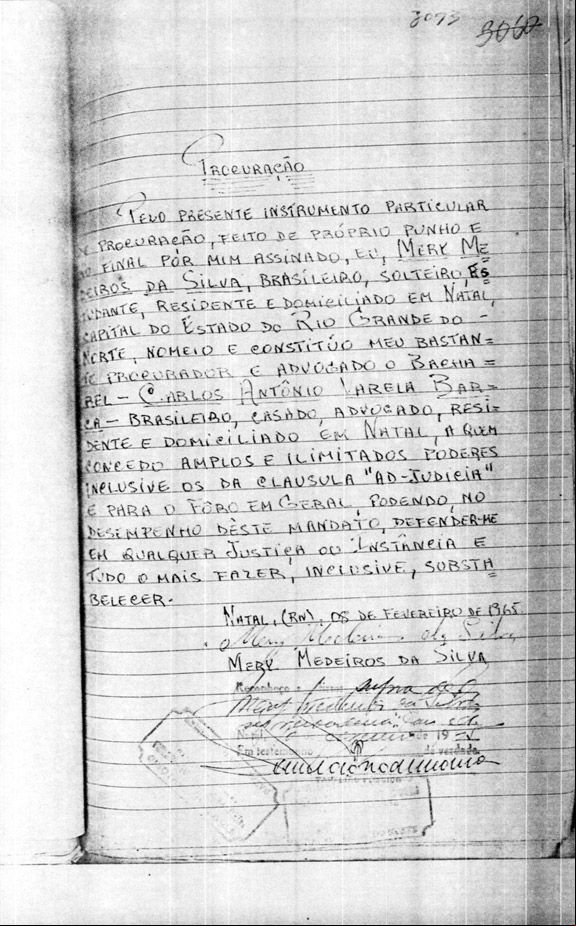 3093
3060
PROCURAÇÃO
PELO PRESENTE INSTRUMENTO PARTICULAR
DE PROCURAÇÃO, FEITO DE PRÓPRIO PUNHO E
AO FINAL POR MIM ASSINADO, EU, MERY ME
DEIROS DA SILVA, BRASILEIRO, SOLTEIRO, ES
TUDANTE, RESIDENTE E DOMICILIADO EM NATAL,
CAPITAL DO ESTADO DO RIO GRANDE DO -
NORTE, NOMEIO E CONSTITÚO MEU BASTAN=
TE PROCURADOR E ADVOGADO O BACHA=
REL - CARLOS ANTÔNIO VARELA BAR=
CA - BRASILEIRO, CASADO, ADVOGADO, RESI=
DENTE E DOMICILIADO EM NATAL, A QUEM
CONCEDO AMPLOS E ILIMITADOS PODERES
INCLUSIVE OS DA CLAUSULA "AD-JUDICIA"
E PARA O FÔRO EM GERAL, PODENDO, NO
DESEMPENHO DÊSTE MANDATO, DEFENDER-ME
EM QUALQUER JUSTIÇA OU INSTÂNCIA E
TUDO O MAIS FAZER, INCLUSIVE, SUBSTA
BELECER.
NATAL, (RN), 08 DE FEVEREIRO DE 1965.
Mery Medeiros da Silva
MERY MEDEIROS DA SILVA
Reconheço a firma supra de
Mery Medeiros da Silva
de 19
Em testemunho da verdade